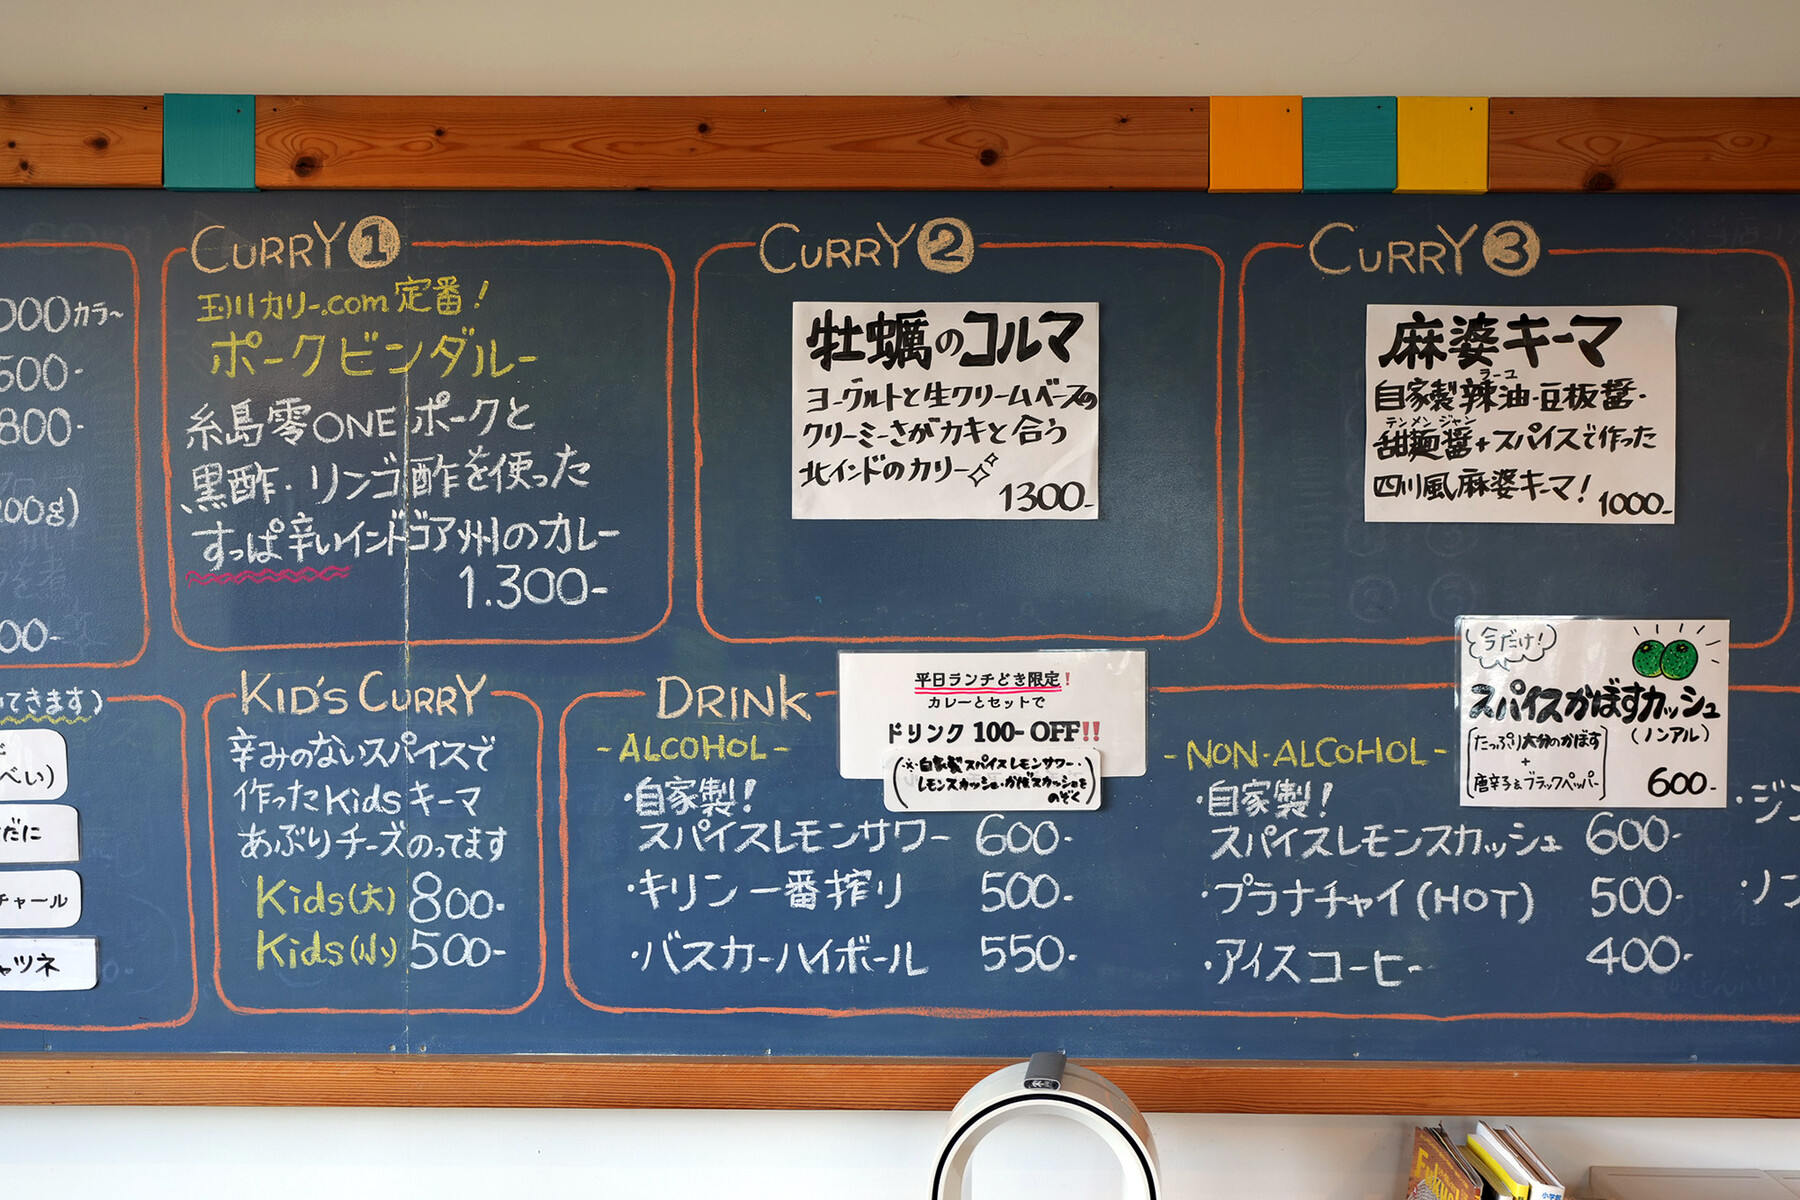 000カラ〜
500-
800-
00g)
00-
CURRY①
玉川カリー.com定番！
ポークビンダルー
糸島雫ONEポークと
黒酢・リンゴ酢を使った
すっぱ辛いインドゴア州のカレー
1.300-
CURRY②
牡蠣のコルマ
ヨーグルトと生クリームベースの
クリーミーさがカキと合う
北インドのカリー
1300-
CURRY③
麻婆キーマ
ラーユ
自家製辣油・豆板醤・
テンメンジャン
甜麺醤+スパイスで作った
四川風麻婆キーマ！
1000-
てきます)
べい)
だに
チャール
ャツネ
KID'S CURRY
辛みのないスパイスで
作ったKidsキーマ
あぶりチーズのってます
Kids(大) 800-
Kids(小) 500-
DRINK
平日ランチどき限定！
カレーとセットで
ドリンク 100- OFF!!
(※自家製スパイスレモンサワー・
レモンスカッシュ・かぼスカッシュを
のぞく)
-ALCOHOL-
・自家製！
スパイスレモンサワー 600-
・キリン一番搾り 500-
・バスカーハイボール 550-
-NON-ALCOHOL-
・自家製！
スパイスレモンスカッシュ 600-
・プラナチャイ(HOT) 500-
・アイスコーヒー 400-
今だけ！
スパイスかぼすカッシュ
(ノンアル)
たっぷり大分のかぼす
+
唐辛子&ブラックペッパー
600-
・ジン
・ノン
Fukuo
小学館